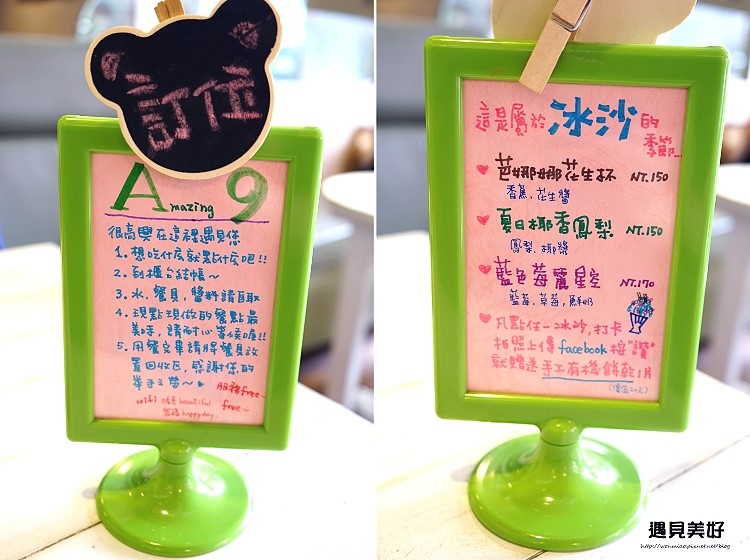 訂位
Amazing 9
很高興在這裡遇見您
1. 想吃什麼就點什麼吧!!
2. 到櫃台結帳~
3. 水、餐具、醬料請自取
4. 現點現做的餐點最
美味,請耐心等候唷!!
5. 用餐完畢請將餐具放
置回收區,感謝您的
舉手之勞~
服務free~
wifi 帳號 beautiful free~
密碼 happyday.
這是屬於冰沙的
季節...
芭娜娜花生杯 NT.150
香蕉、花生醬
夏日椰香鳳梨 NT.150
鳳梨、椰漿
藍色莓麗星空 NT.170
藍莓、草莓、鮮奶
凡點任一冰沙,打卡
拍照上傳facebook按"讚"
就贈送手工有機餅乾1片
遇見美好